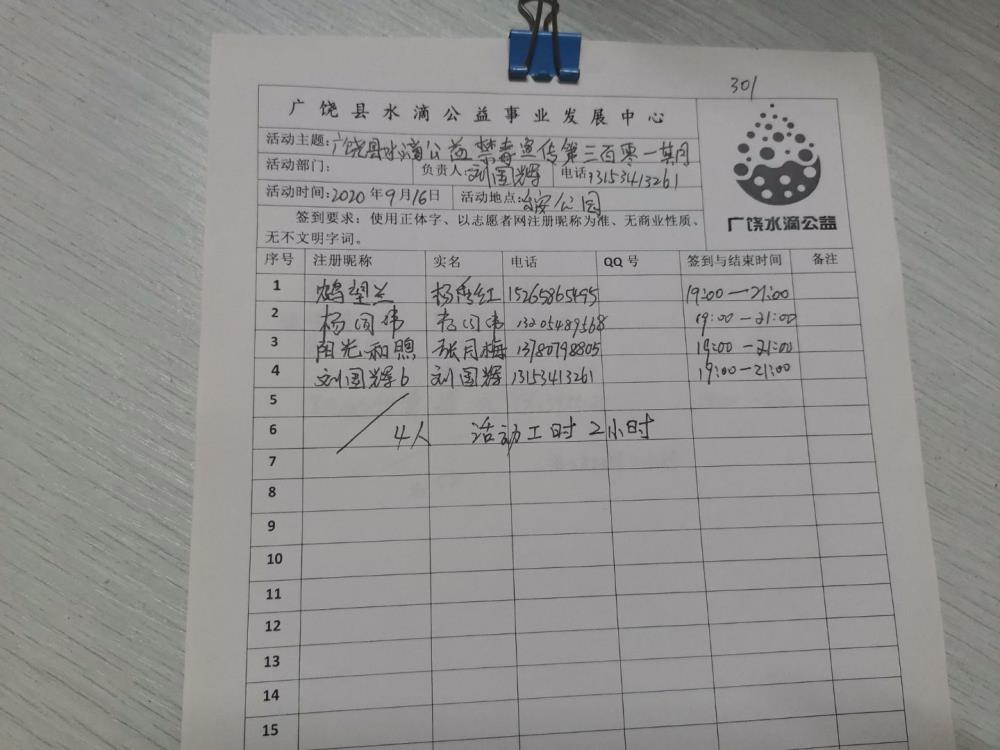 301
广饶县水滴公益事业发展中心
活动主题:广饶县水滴公益禁毒宣传第三百零一期
活动部门: 负责人:刘国辉 电话:13153413261
活动时间:2020年9月16日 活动地点: 公园
广饶水滴公益
签到要求:使用正体字、以志愿者网注册昵称为准、无商业性质、
无不文明字词。
序号 注册昵称 实名 电话 QQ号 签到与结束时间 备注
1 鹤望兰 杨秀红 15265865495 19:00—21:00
2 杨同伟 杨同伟 13205489568 19:00—21:00
3 阳光和煦 张月梅 13780798805 19:00—21:00
4 刘国辉6 刘国辉 13153413261 19:00—21:00
5
6 4人 活动工时2小时
7
8
9
10
11
12
13
14
15